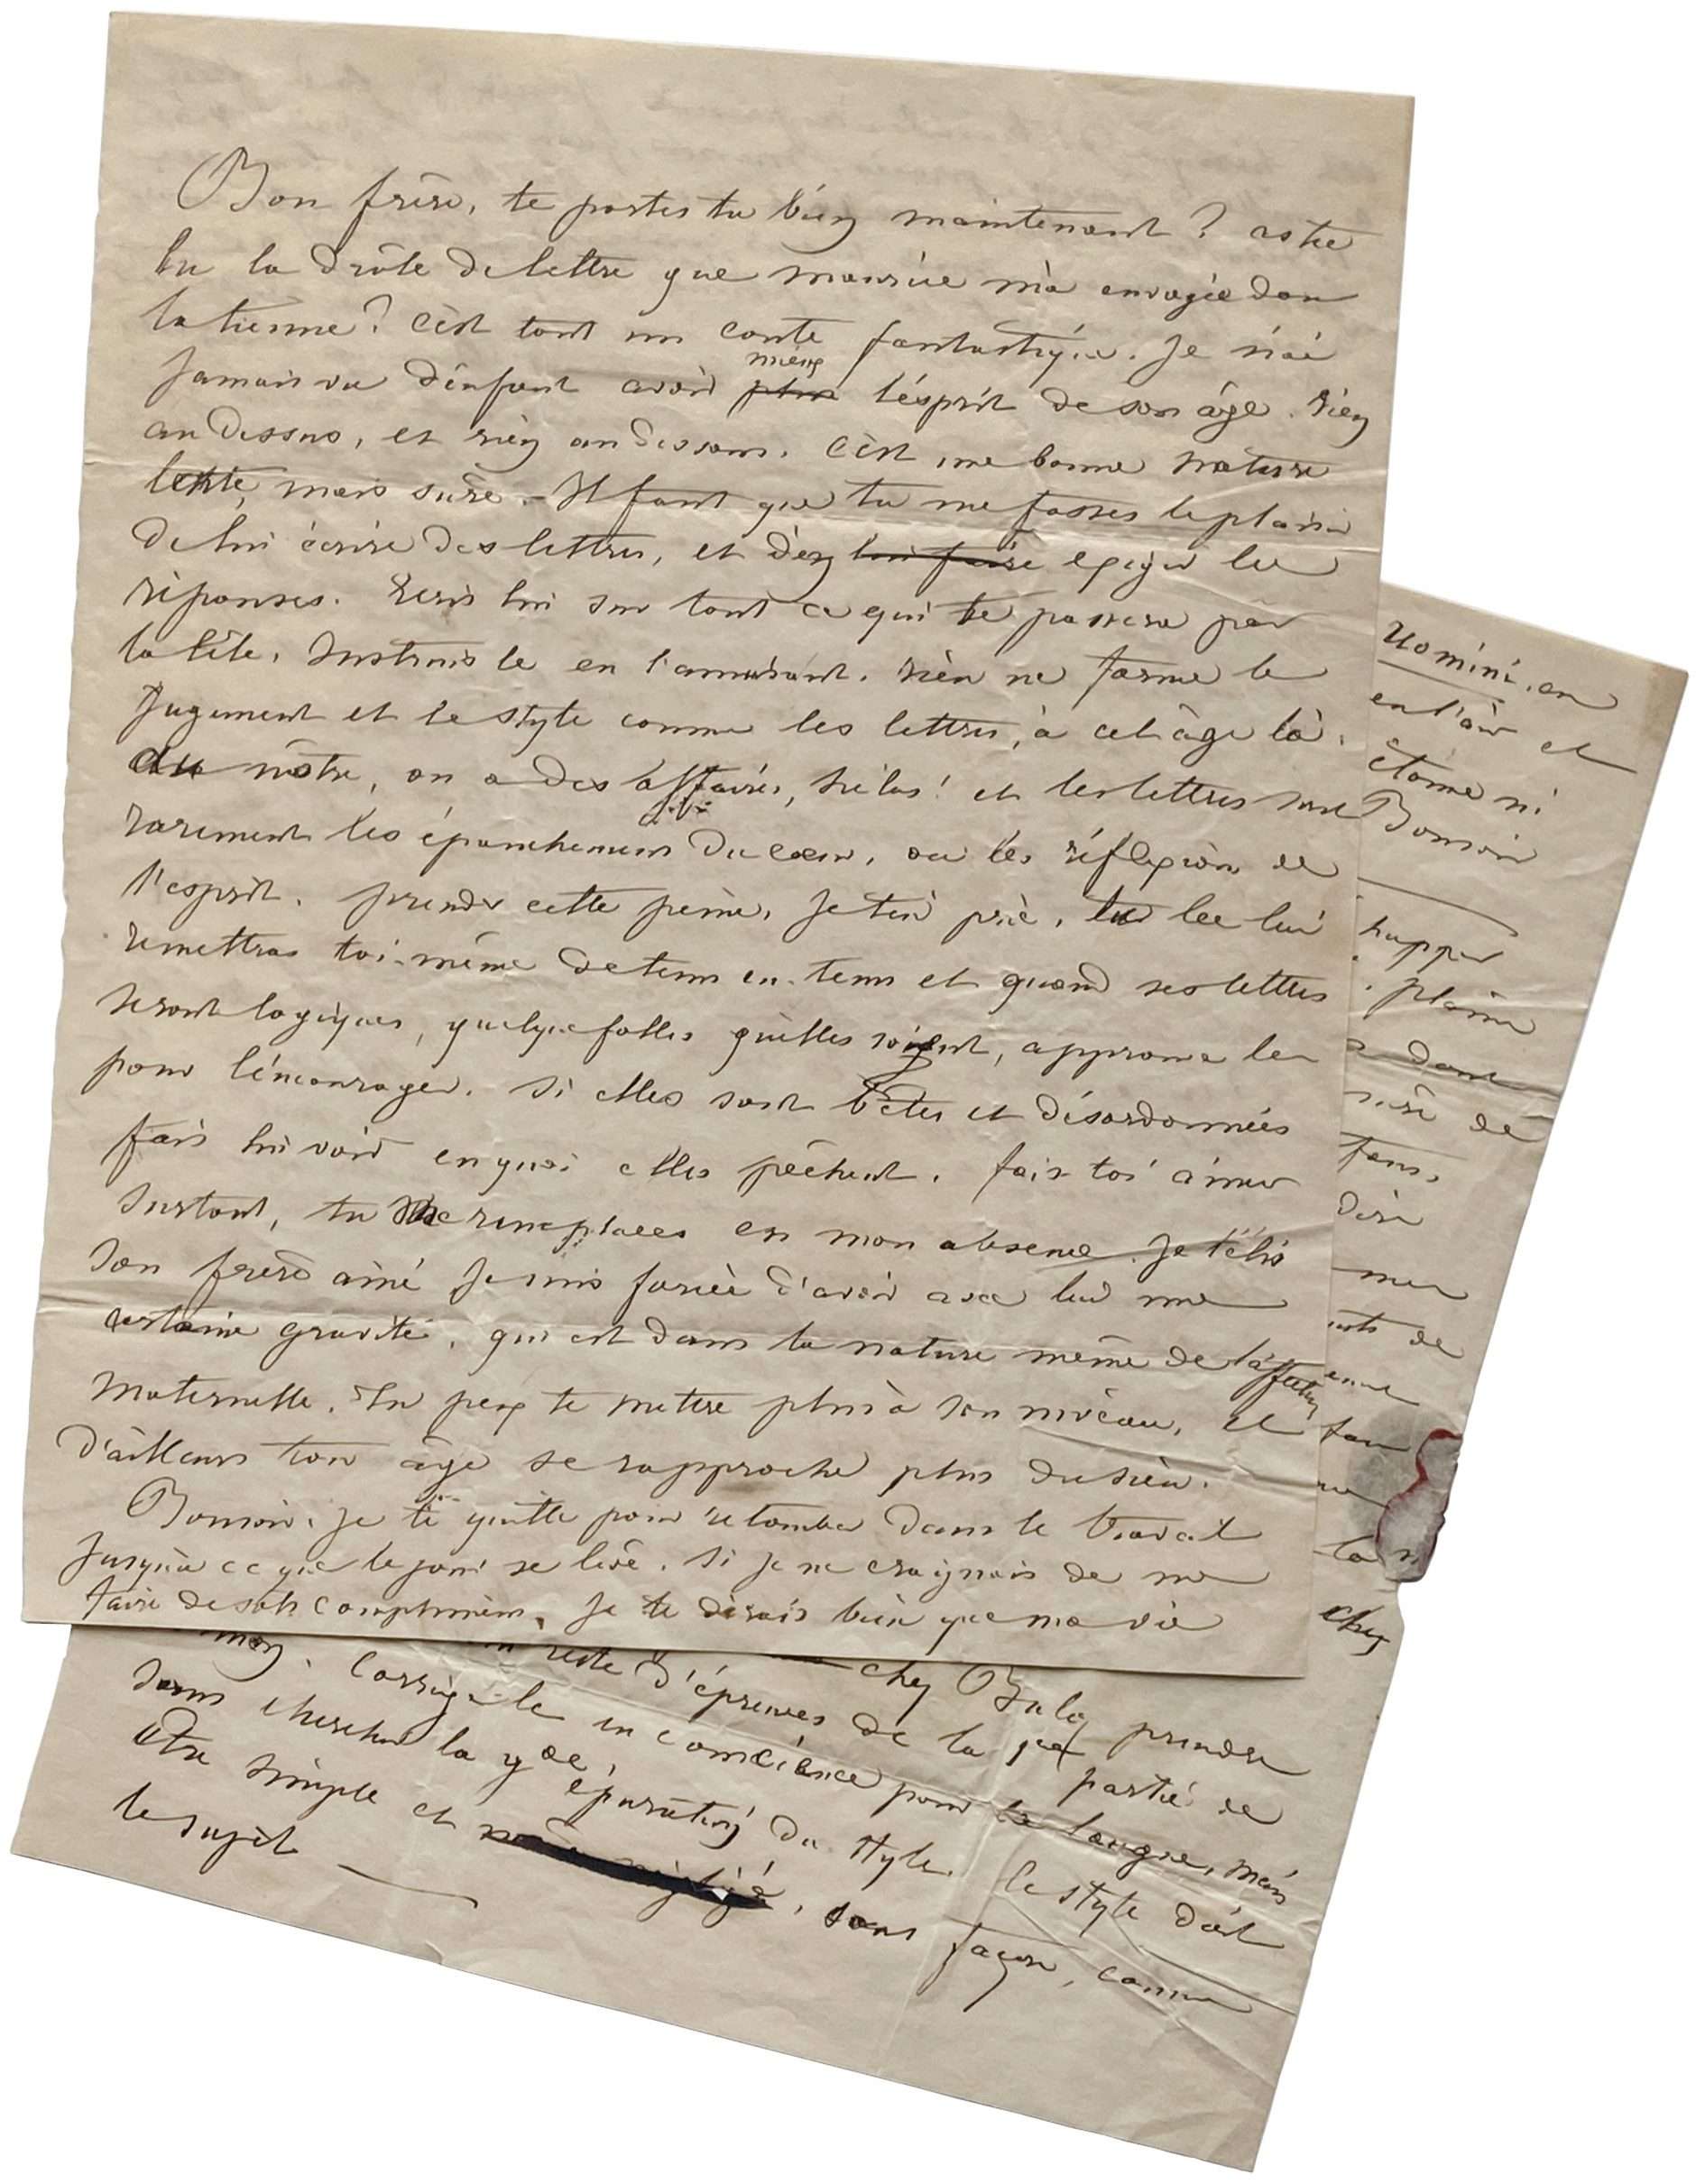 Bon frère, te portes tu bien maintenant ? as tu
lu la drôle de lettre que maurice m'a envoyée dans
la tienne ? C'est tout un conte fantastique. Je n'ai
jamais vu d'enfant avoir plus mieux l'esprit de son âge. rien
au dessus, et rien au dessous. C'est une bonne nature
lente, mais sûre. – Il faut que tu me fasses le plaisir
de lui écrire des lettres, et d'en lui faire exiger les
réponses. Ecris lui sur tout ce qui te passera par
la tête. Instruis le en l'amusant. rien ne forme le
jugement et le style comme les lettres, à cet âge là.
Au nôtre, on a des affaires, hélas ! et les lettres sont
rarement les épanchemens du cœur, ou les réflexions de
l'esprit. prends cette peine, je t'en prie, tu les lui
remettras toi-même de tems en tems et quand ses lettres
seront logiques, quelque folles qu'elles soient, approuve les
pour l'encourager. Si elles sont bêtes et désordonnées
fais lui voir en quoi elles pêchent. fais toi aimer
surtout, tu me remplaces en mon absence. Je t'élis
son frère aîné Je suis forcée d'avoir avec lui une
certaine gravité, qui est dans la nature même de l'affection
maternelle. Tu peux te mettre plus à son niveau, et
d'ailleurs ton âge se rapproche plus du sien.
Bonsoir. je te quitte pour retomber dans le travail
jusqu'à ce que le jour se lève. Si je ne craignais de me
faire de sots complimens, je te dirais bien que ma vie
Uomini, en
en l'air et
étonne ni
Bonsoir
plaine
dont
de
dire
de
la
chez
chez Buloz prendre
reste d'épreuves de la partie de
mon. Corrige le en conscience pour la langue, mais
sans chercher la gde épuration du style. Le style doit
être simple et négligé, sans façon, comme
le sujet —